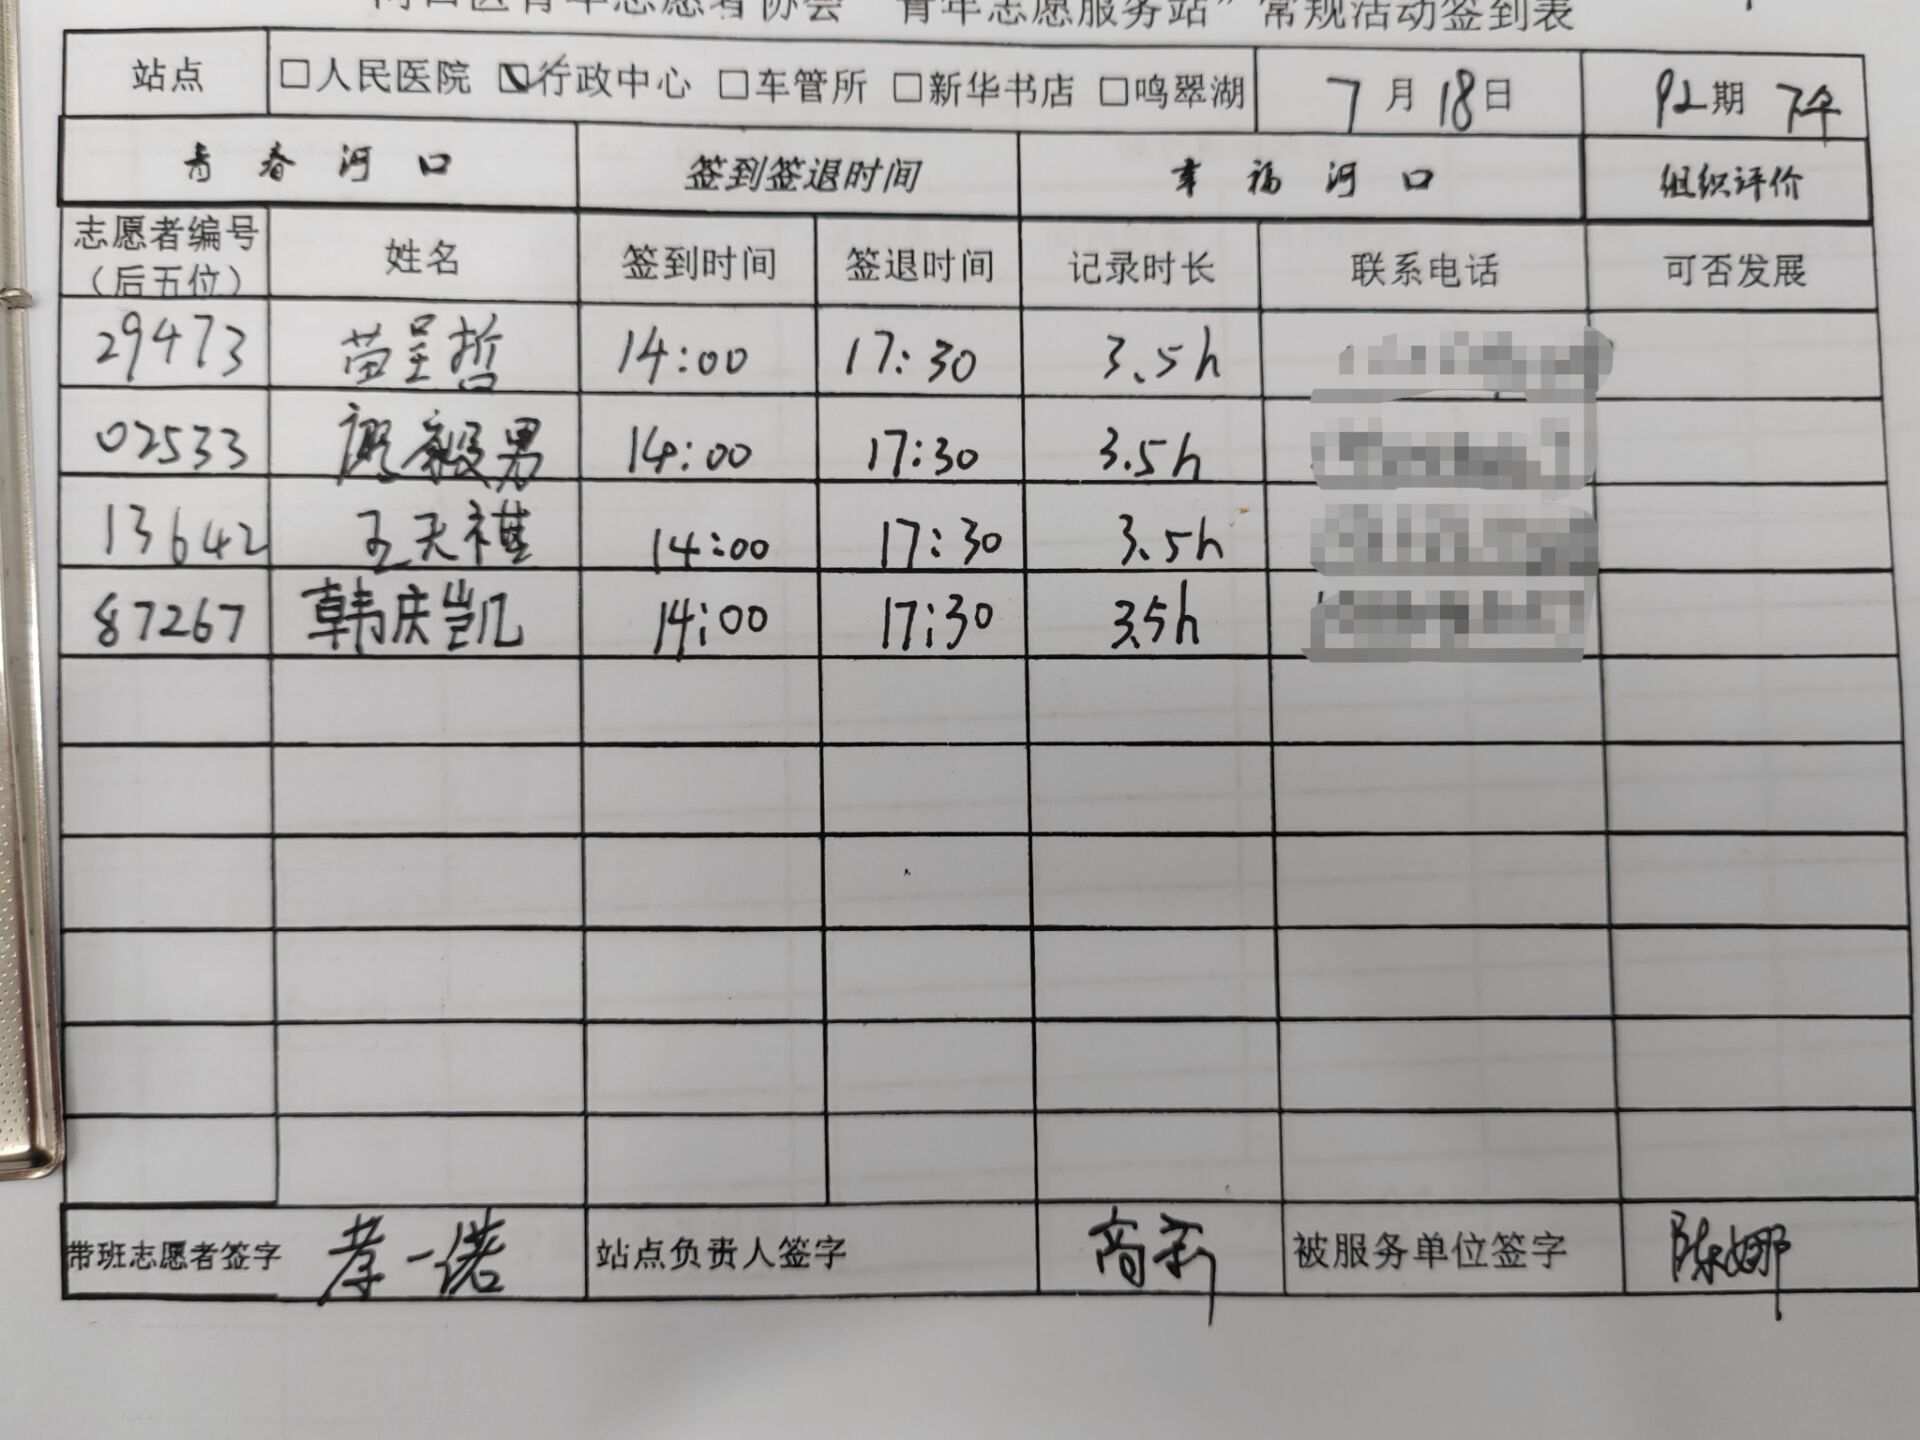 河口区青年志愿者协会“青年志愿服务站”常规活动签到表
站点 □人民医院 ☑行政中心 □车管所 □新华书店 □鸣翠湖 7月18日 92期 下午
青春河口 签到签退时间 幸福河口 组织评价
志愿者编号（后五位） 姓名 签到时间 签退时间 记录时长 联系电话 可否发展
29473 苗呈哲 14:00 17:30 3.5h
02533 毅男 14:00 17:30 3.5h
13642 王天祺 14:00 17:30 3.5h
87267 韩庆凯 14:00 17:30 3.5h
带班志愿者签字 一诺 站点负责人签字 商 被服务单位签字 陈娜